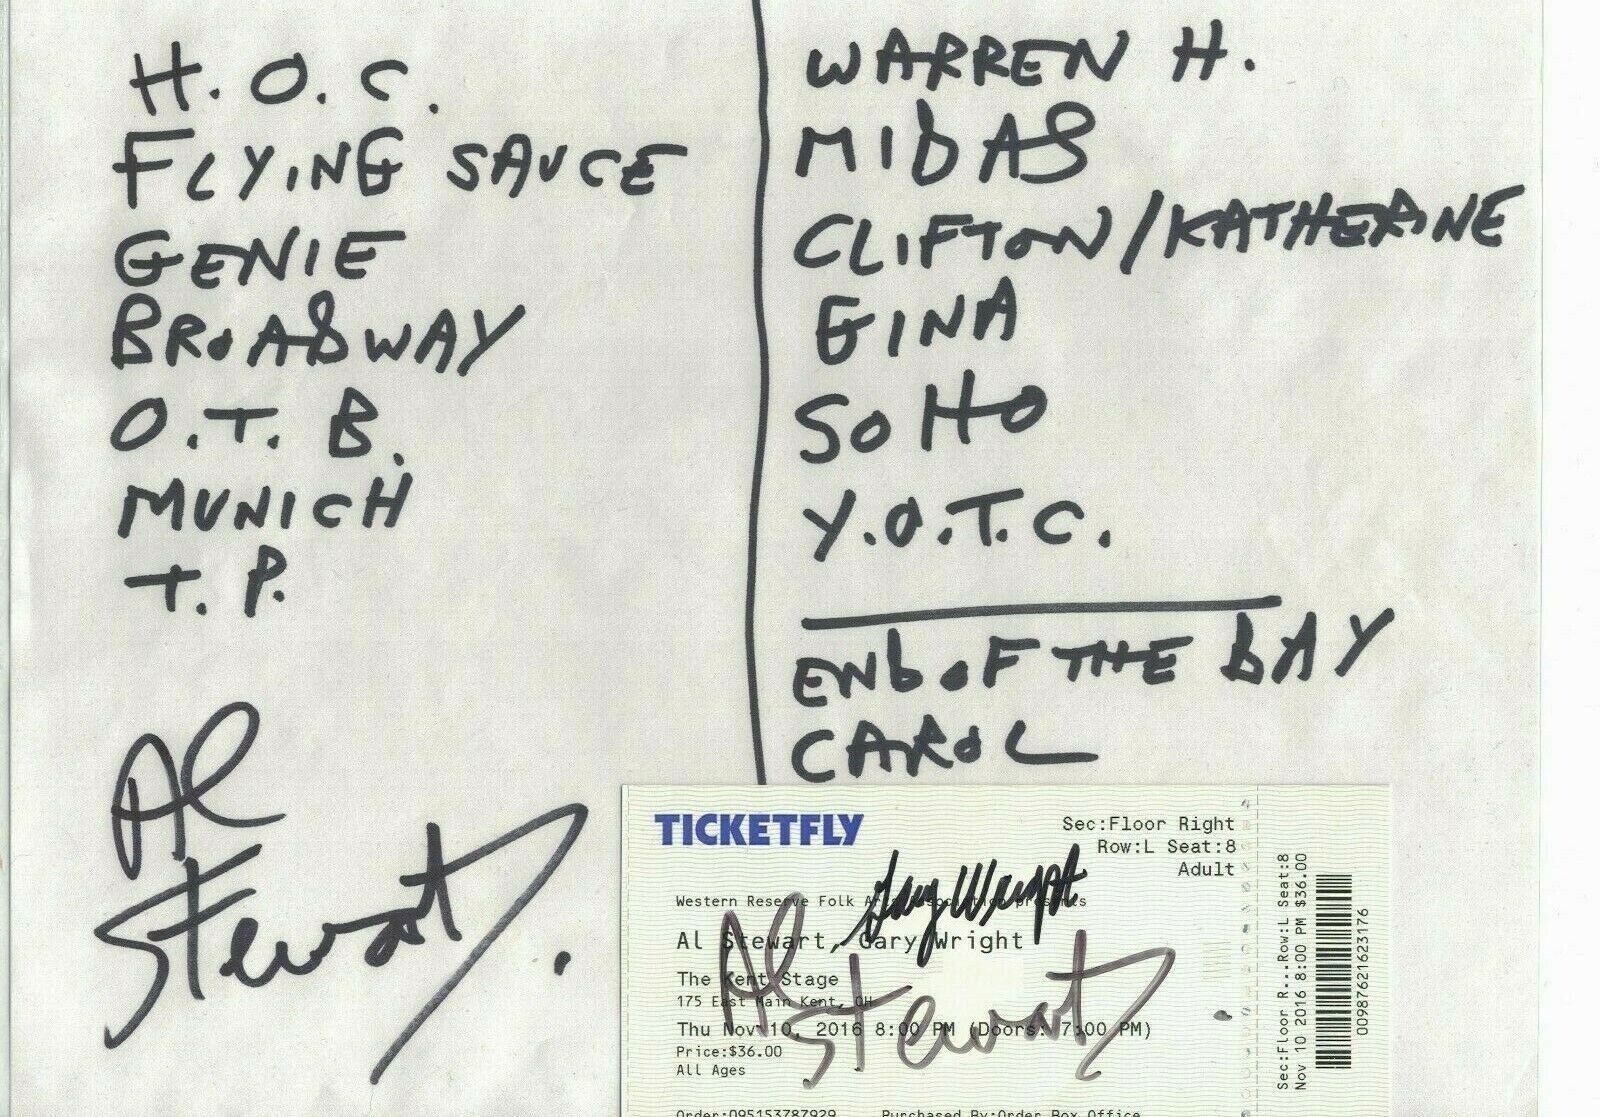 H.O.C.
FLYING SAUCE
GENIE
BROADWAY
O.T.B.
MUNICH
T.P.
Al
Stewart.
WARREN H.
MIDAS
CLIFTON/KATHERINE
GINA
SOHO
Y.O.T.C.
END OF THE DAY
CAROL
TICKETFLY
Sec:Floor Right
Row:L Seat:8
Adult
Western Reserve Folk Arts Association presents
Al Stewart, Gary Wright
Gary Wright
The Kent Stage
175 East Main Kent, OH
Thu Nov 10, 2016 8:00 PM (Doors: 7:00 PM)
Al
Stewart
Price:$36.00
All Ages
Order:095153787929 Purchased By:Order Box Office
Sec:Floor R...Row:L Seat:8
Nov 10 2016 8:00 PM $36.00
00987621623176